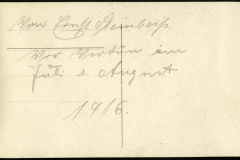 Von Ernst Steinberg
Vor Virtün im
Juli & August
1916.